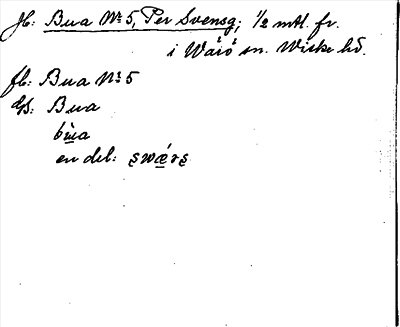 Jb: Bua No 5, Per Svensg; 1/2 mtl. fr.
i Wärö sn. Wiske hd.
fb: Bua No 5
Us: Bua
bùa
en del: swǽrs